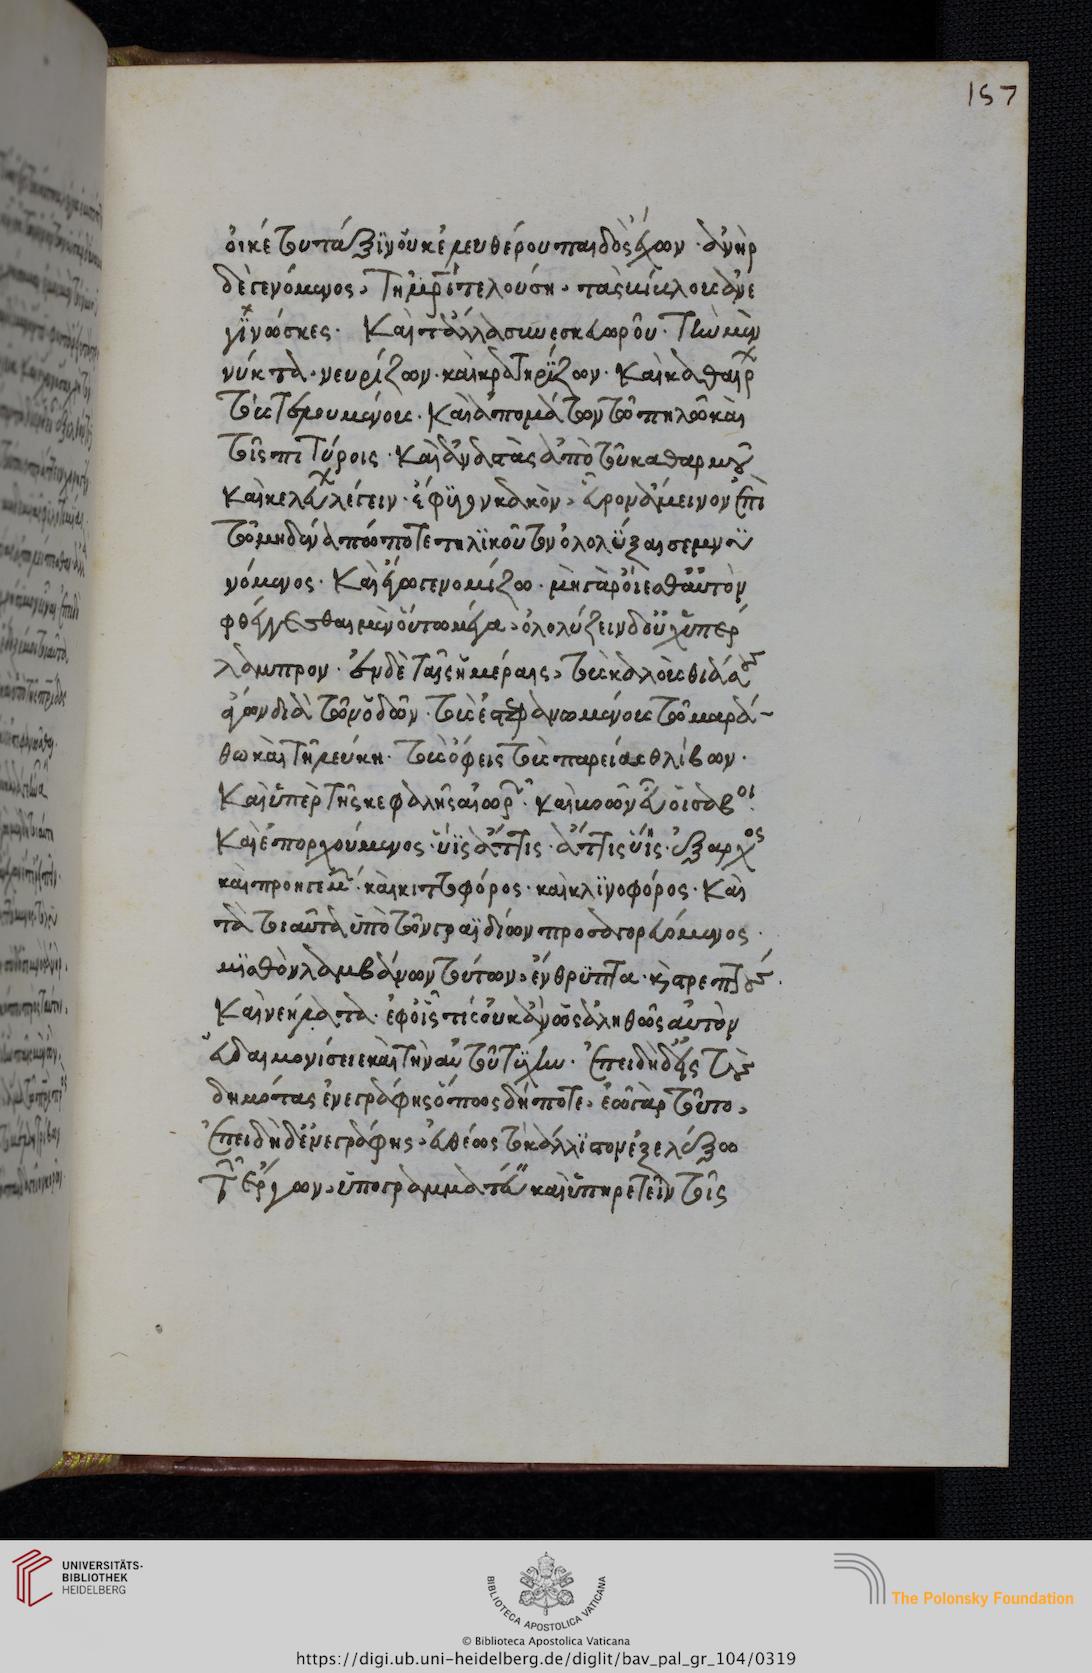 157
οἰκέτου τάξιν οὐκ ἐλευθέρου παιδὸς ἔχων· ἀνὴρ
δὲ γενόμενος, τῇ μητρὶ τελούσῃ, τὰς βίβλους ἀνε
γίνωσκες· καὶ τἄλλα συνεσκευωροῦ· τὴν μὲν
νύκτα νεβρίζων· καὶ κρατηρίζων· καὶ καθαίρων
τοὺς τελουμένους· καὶ ἀπομάττων τῷ πηλῷ καὶ
τοῖς πιτύροις· καὶ ἀνιστὰς ἀπὸ τοῦ καθαρμοῦ
καὶ κελεύων λέγειν· ἔφυγον κακὸν, εὗρον ἄμεινον· ἐπὶ
τῷ μηδένα πώποτε τηλικοῦτον ὀλολύξαι σεμνυ
νόμενος· καὶ ἔγωγε νομίζω· μὴ γὰρ οἴεσθ' αὐτὸν
φθέγγεσθαι μὲν οὕτω μέγα, ὀλολύζειν δ' οὐχ ὑπέρ
λαμπρον· ἐν δὲ ταῖς ἡμέραις, τοὺς καλοὺς θιάσους
ἄγων διὰ τῶν ὁδῶν· τοὺς ἐστεφανωμένους τῷ μαρά
θῳ καὶ τῇ λεύκῃ· τοὺς ὄφεις τοὺς παρείας θλίβων·
καὶ ὑπὲρ τῆς κεφαλῆς αἰωρῶν· καὶ βοῶν εὐοῖ σαβοῖ·
καὶ ἐπορχούμενος· ὑῆς ἄττης· ἄττης ὑῆς· ἔξαρχος
καὶ προηγεμών· καὶ κιττοφόρος· καὶ λικνοφόρος· καὶ
τὰ τοιαῦτα ὑπὸ τῶν γραϊδίων προσαγορευόμενος·
μισθὸν λαμβάνων τούτων, ἔνθρυπτα· καὶ στρεπτοὺς·
καὶ νεήλατα· ἐφ' οἷς τίς οὐκ ἂν ὡς ἀληθῶς αὐτὸν
εὐδαιμονίσειε καὶ τὴν αὐτοῦ τύχην· ἐπειδὴ δ' εἰς τοὺς
δημότας ἐνεγράφης ὅπως δήποτε, ἐῶ γὰρ τοῦτο,
ἐπειδὴ δ' ἐνεγράφης, εὐθέως τὸ κάλλιστον ἐξελέξω
τῶν ἔργων, ὑπογραμματεύειν καὶ ὑπηρετεῖν τοῖς
UNIVERSITÄTS-
BIBLIOTHEK
HEIDELBERG
BIBLIOTECA APOSTOLICA VATICANA
The Polonsky Foundation
© Biblioteca Apostolica Vaticana
https://digi.ub.uni-heidelberg.de/diglit/bav_pal_gr_104/0319